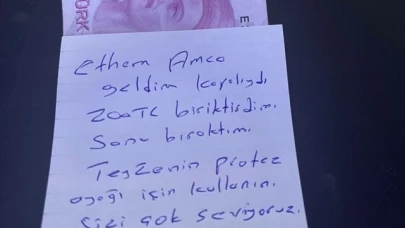 TÜRK
E
Ethem Amca
geldim kapalıydı
200TL biriktirdim.
Sana bıraktım.
Teyzenin protez
ayağı için kullanın.
Sizi çok seviyoruz.